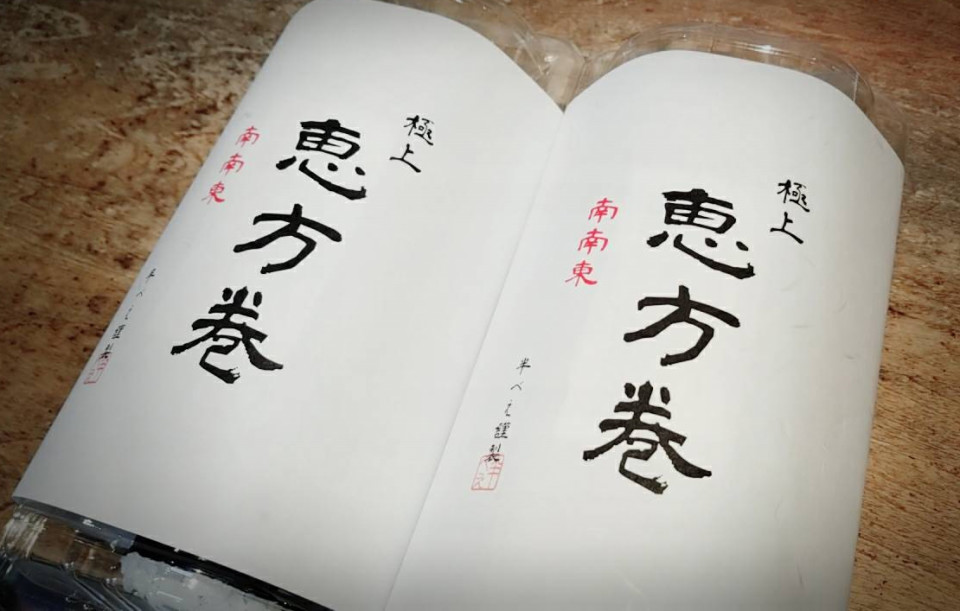 極上
恵方巻
南南東
半べゑ謹製
極上
恵方巻
南南東
半べゑ謹製